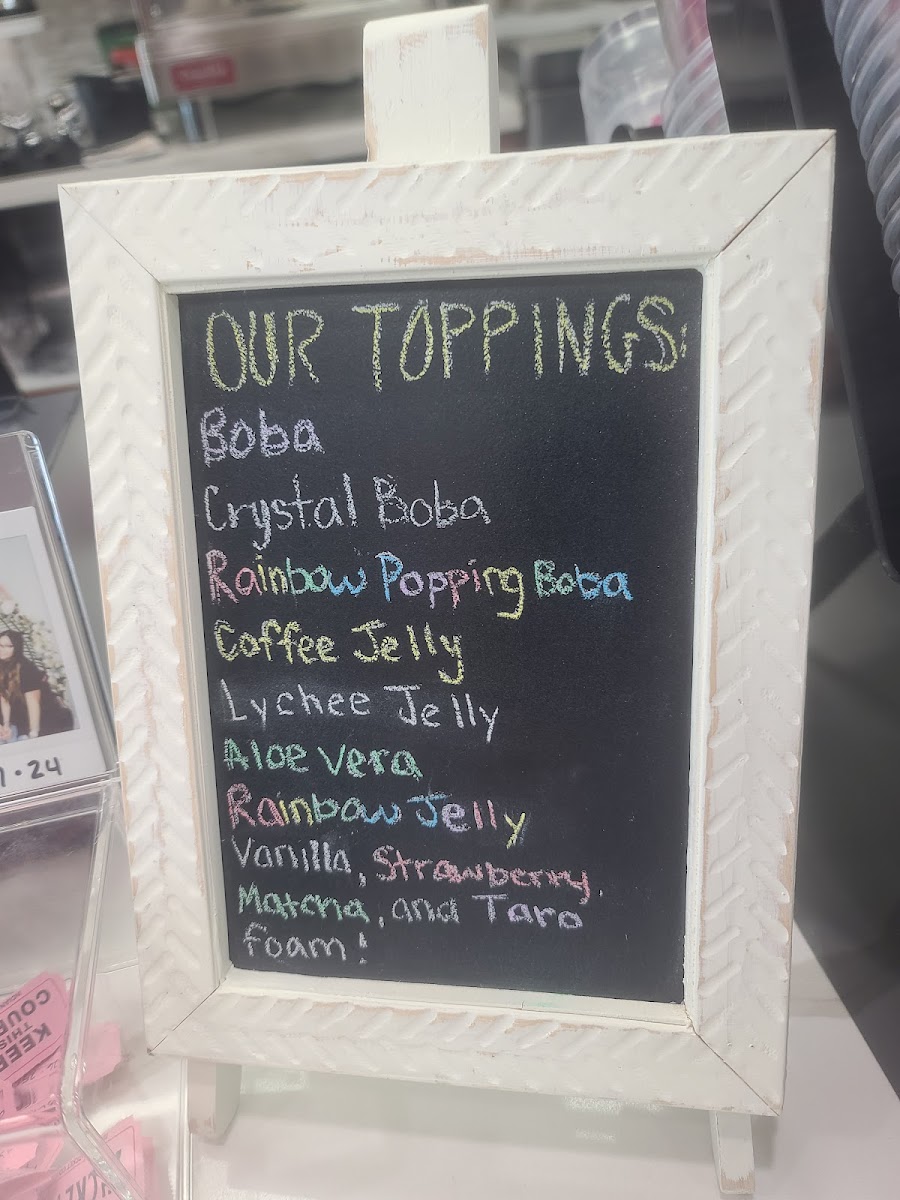 OUR TOPPINGS
Boba
Crystal Boba
Rainbow Popping Boba
Coffee Jelly
Lychee Jelly
Aloe Vera
Rainbow Jelly
Vanilla, Strawberry,
Matcha, and Taro
foam!
24
KEEP
THIS